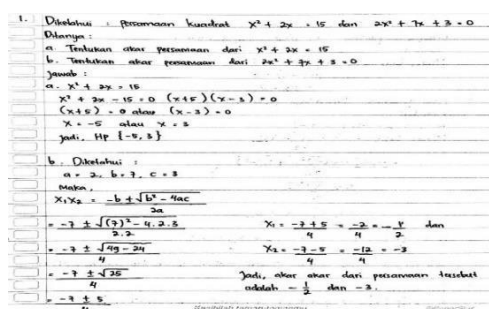 1. Diketahui : Persamaan kuadrat x² + 2x = 15 dan 2x² + 7x + 3 = 0
Ditanya :
a. Tentukan akar persamaan dari x² + 2x = 15
b. Tentukan akar persamaan dari 2x² + 7x + 3 = 0
Jawab :
a. x² + 2x = 15
x² + 2x - 15 = 0 (x+5)(x-3) = 0
(x+5) = 0 atau (x-3) = 0
x = -5 atau x = 3
Jadi, HP {-5, 3}
b. Diketahui :
a = 2, b = 7, c = 3
Maka,
x₁x₂ = (-b ± √(b² - 4ac)) / 2a
= (-7 ± √((7)² - 4.2.3)) / 2.2
= (-7 ± √(49 - 24)) / 4
= (-7 ± √25) / 4
= (-7 ± 5) / 4
x₁ = (-7 + 5) / 4 = -2 / 4 = -1/2 dan
x₂ = (-7 - 5) / 4 = -12 / 4 = -3
Jadi, akar akar dari persamaan tersebut
adalah - 1/2 dan -3.